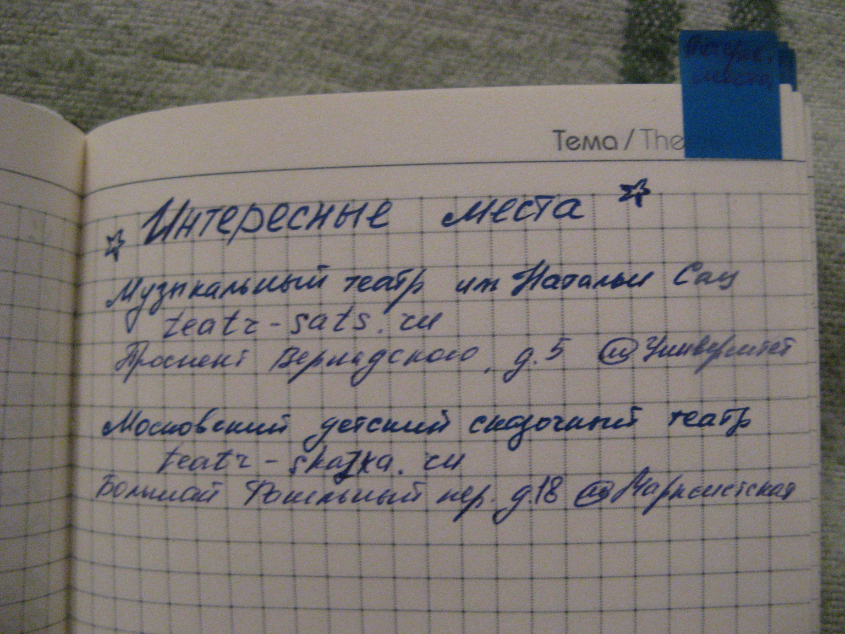 Интерес.
места
Тема / The
☆ Интересные места ☆
Музыкальный театр им Натальи Сац
teatr-sats.ru
Проспект Вернадского, д.5 (м) Университет
Московский детский сказочный театр
teatr-skazka.ru
Большой Факельный пер. д.18 (м) Марксистская